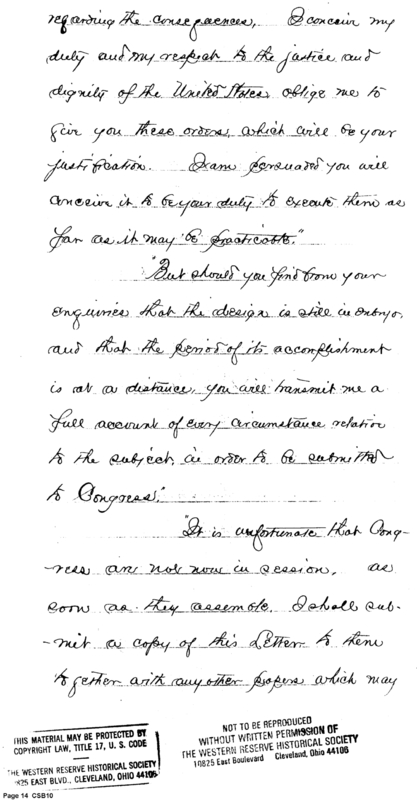 regarding the consequences, I conceive my
duty and my respect to the justice and
dignity of the United States oblige me to
give you these orders, which will be your
justification. I am persuaded you will
conceive it to be your duty to execute them as
far as it may be practicable."
"But should you find from your
enquiries that the design is still in embryo,
and that the period of its accomplishment
is at a distance, you will transmit me a
full account of every circumstance relation
to the subject, in order to be submitted
to Congress."
"It is unfortunate that Cong-
-ress are not now in session, as
soon as they assemble, I shall sub-
-mit a copy of this Letter to them
together with any other papers which may
THIS MATERIAL MAY BE PROTECTED BY
COPYRIGHT LAW, TITLE 17, U. S. CODE
THE WESTERN RESERVE HISTORICAL SOCIETY
10825 EAST BLVD., CLEVELAND, OHIO 44106
NOT TO BE REPRODUCED
WITHOUT WRITTEN PERMISSION OF
THE WESTERN RESERVE HISTORICAL SOCIETY
10825 East Boulevard Cleveland, Ohio 44106
Page 14 CSB10